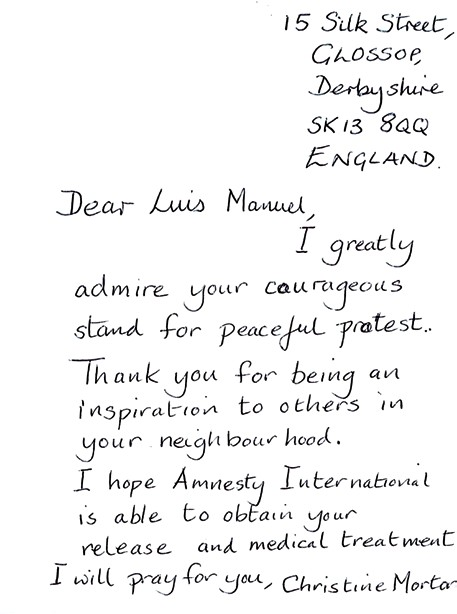 15 Silk Street,
GLOSSOP,
Derbyshire
SK13 8QQ
ENGLAND.
Dear Luis Manuel,
I greatly
admire your courageous
stand for peaceful protest..
Thank you for being an
inspiration to others in
your neighbourhood.
I hope Amnesty International
is able to obtain your
release and medical treatment
I will pray for you, Christine Morton